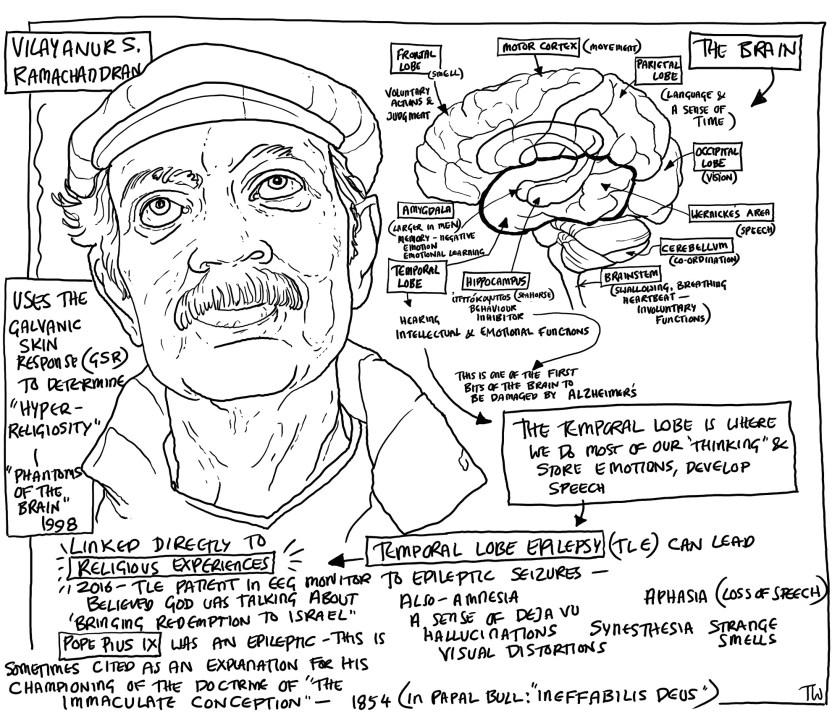 VILAYANUR S.
RAMACHANDRAN
USES THE
GALVANIC
SKIN
RESPONSE (GSR)
TO DETERMINE
"HYPER-
RELIGIOSITY"
"PHANTOMS
OF THE
BRAIN"
1998
THE BRAIN
FRONTAL
LOBE
(SMELL)
VOLUNTARY
ACTIONS &
JUDGMENT
MOTOR CORTEX (MOVEMENT)
PARIETAL
LOBE
(LANGUAGE &
A SENSE OF
TIME)
OCCIPITAL
LOBE
(VISION)
WERNICKE'S AREA
(SPEECH)
CEREBELLUM
(CO-ORDINATION)
BRAINSTEM
(SWALLOWING, BREATHING
HEARTBEAT —
INVOLUNTARY
FUNCTIONS)
AMYGDALA
(LARGER IN MEN)
MEMORY - NEGATIVE
EMOTION
EMOTIONAL LEARNING
TEMPORAL
LOBE
HEARING
INTELLECTUAL & EMOTIONAL FUNCTIONS
HIPPOCAMPUS
(SEAHORSE)
BEHAVIOUR
INHIBITOR
THIS IS ONE OF THE FIRST
BITS OF THE BRAIN TO
BE DAMAGED BY ALZHEIMER'S
THE TEMPORAL LOBE IS WHERE
WE DO MOST OF OUR "THINKING" &
STORE EMOTIONS, DEVELOP
SPEECH
TEMPORAL LOBE EPILEPSY (TLE) CAN LEAD
TO EPILEPTIC SEIZURES —
ALSO - AMNESIA
A SENSE OF DEJA VU
HALLUCINATIONS
VISUAL DISTORTIONS
APHASIA (LOSS OF SPEECH)
SYNESTHESIA STRANGE
SMELLS
LINKED DIRECTLY TO
RELIGIOUS EXPERIENCES
2016 - TLE PATIENT IN EEG MONITOR
BELIEVED GOD WAS TALKING ABOUT
"BRINGING REDEMPTION TO ISRAEL"
POPE PIUS IX WAS AN EPILEPTIC - THIS IS
SOMETIMES CITED AS AN EXPLANATION FOR HIS
CHAMPIONING OF THE DOCTRINE OF "THE
IMMACULATE CONCEPTION" — 1854 (IN PAPAL BULL: "INEFFABILIS DEUS")
TW